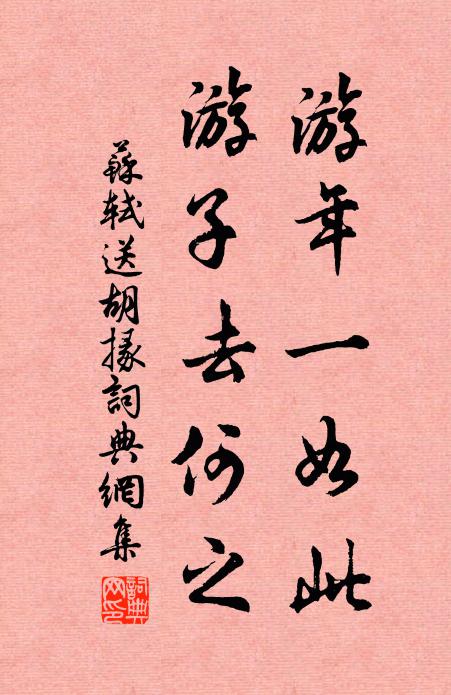 游年一如此
游子去何之
蘇軾送胡掾詞典網集
詞典
网印